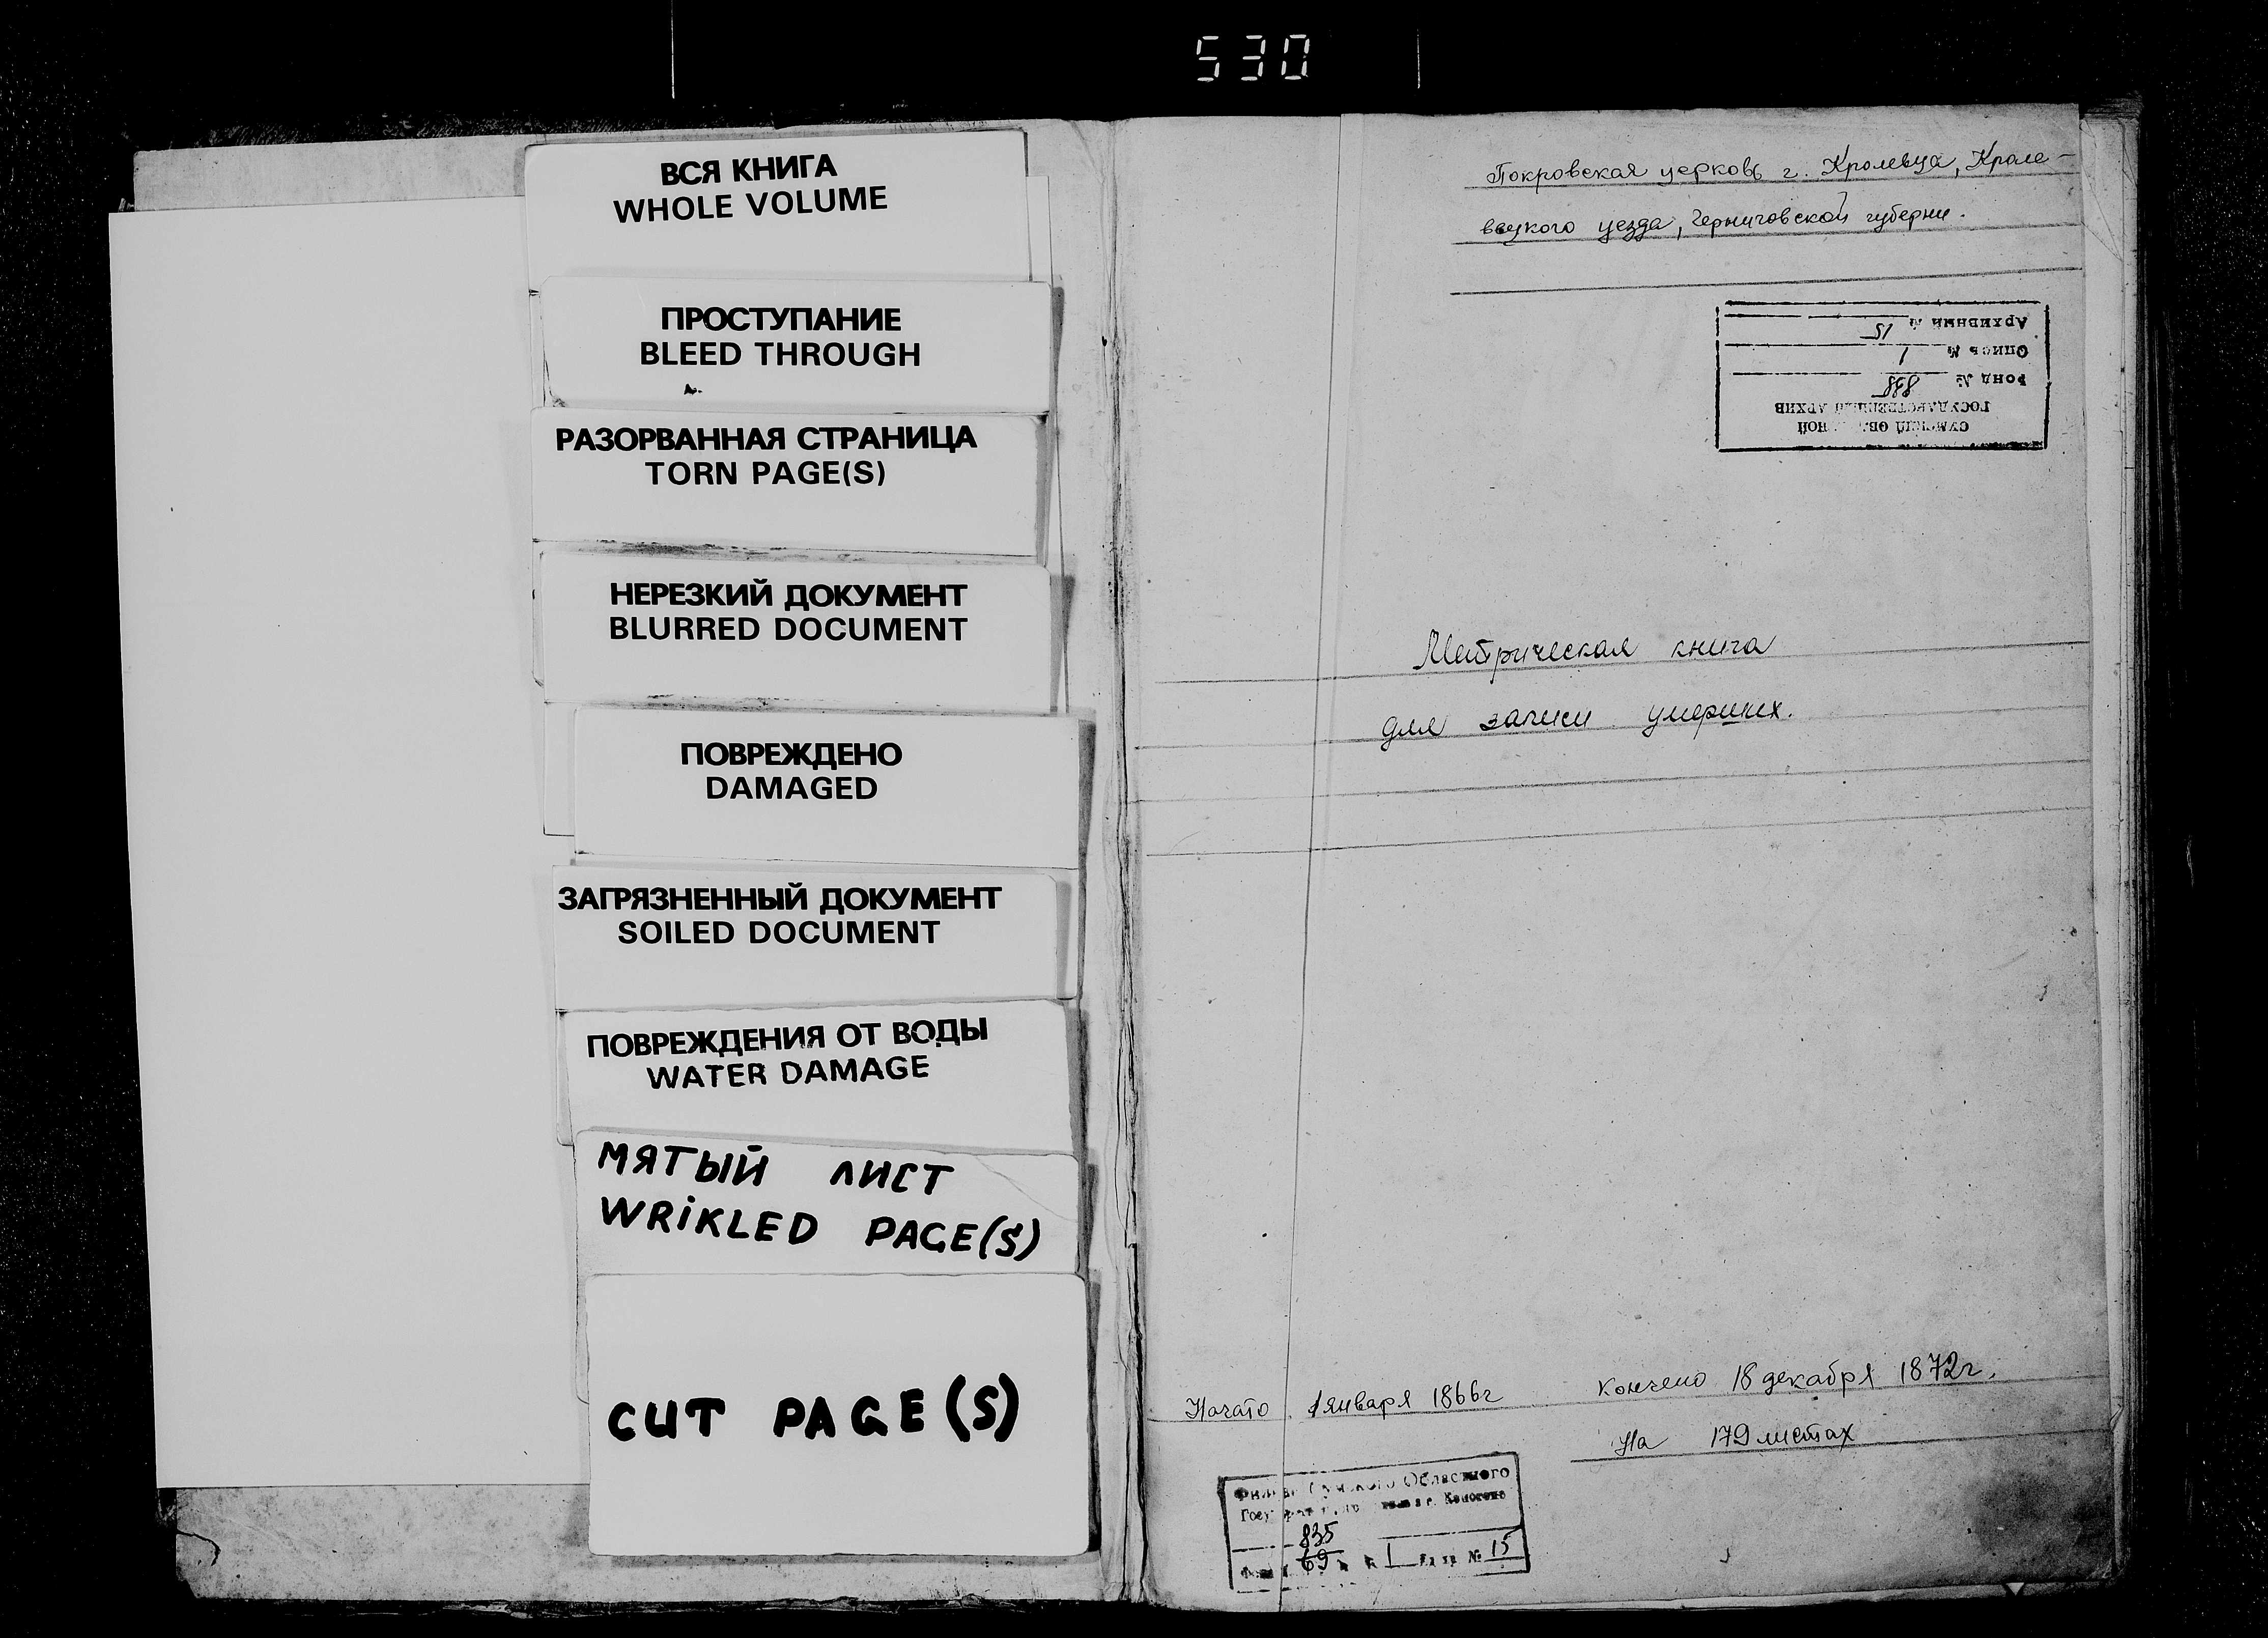 530
ВСЯ КНИГА
WHOLE VOLUME
ПРОСТУПАНИЕ
BLEED THROUGH
РАЗОРВАННАЯ СТРАНИЦА
TORN PAGE(S)
НЕРЕЗКИЙ ДОКУМЕНТ
BLURRED DOCUMENT
ПОВРЕЖДЕНО
DAMAGED
ЗАГРЯЗНЕННЫЙ ДОКУМЕНТ
SOILED DOCUMENT
ПОВРЕЖДЕНИЯ ОТ ВОДЫ
WATER DAMAGE
МЯТЫЙ ЛИСТ
WRIKLED PAGE(S)
CUT PAGE(S)
Покровская церковь г. Кролевца, Кроле-
вецкого уезда, Черниговской губерни.
ГОСУДАРСТВЕННЫЙ АРХИВ
Фонд №
Опись № 1
Архивный № 15
Метрическая книга
для записи умерших.
Начато 1 января 1866г Кончено 18 декабря 1872г.
На 179 листах
Областного
835
69 1 № 15